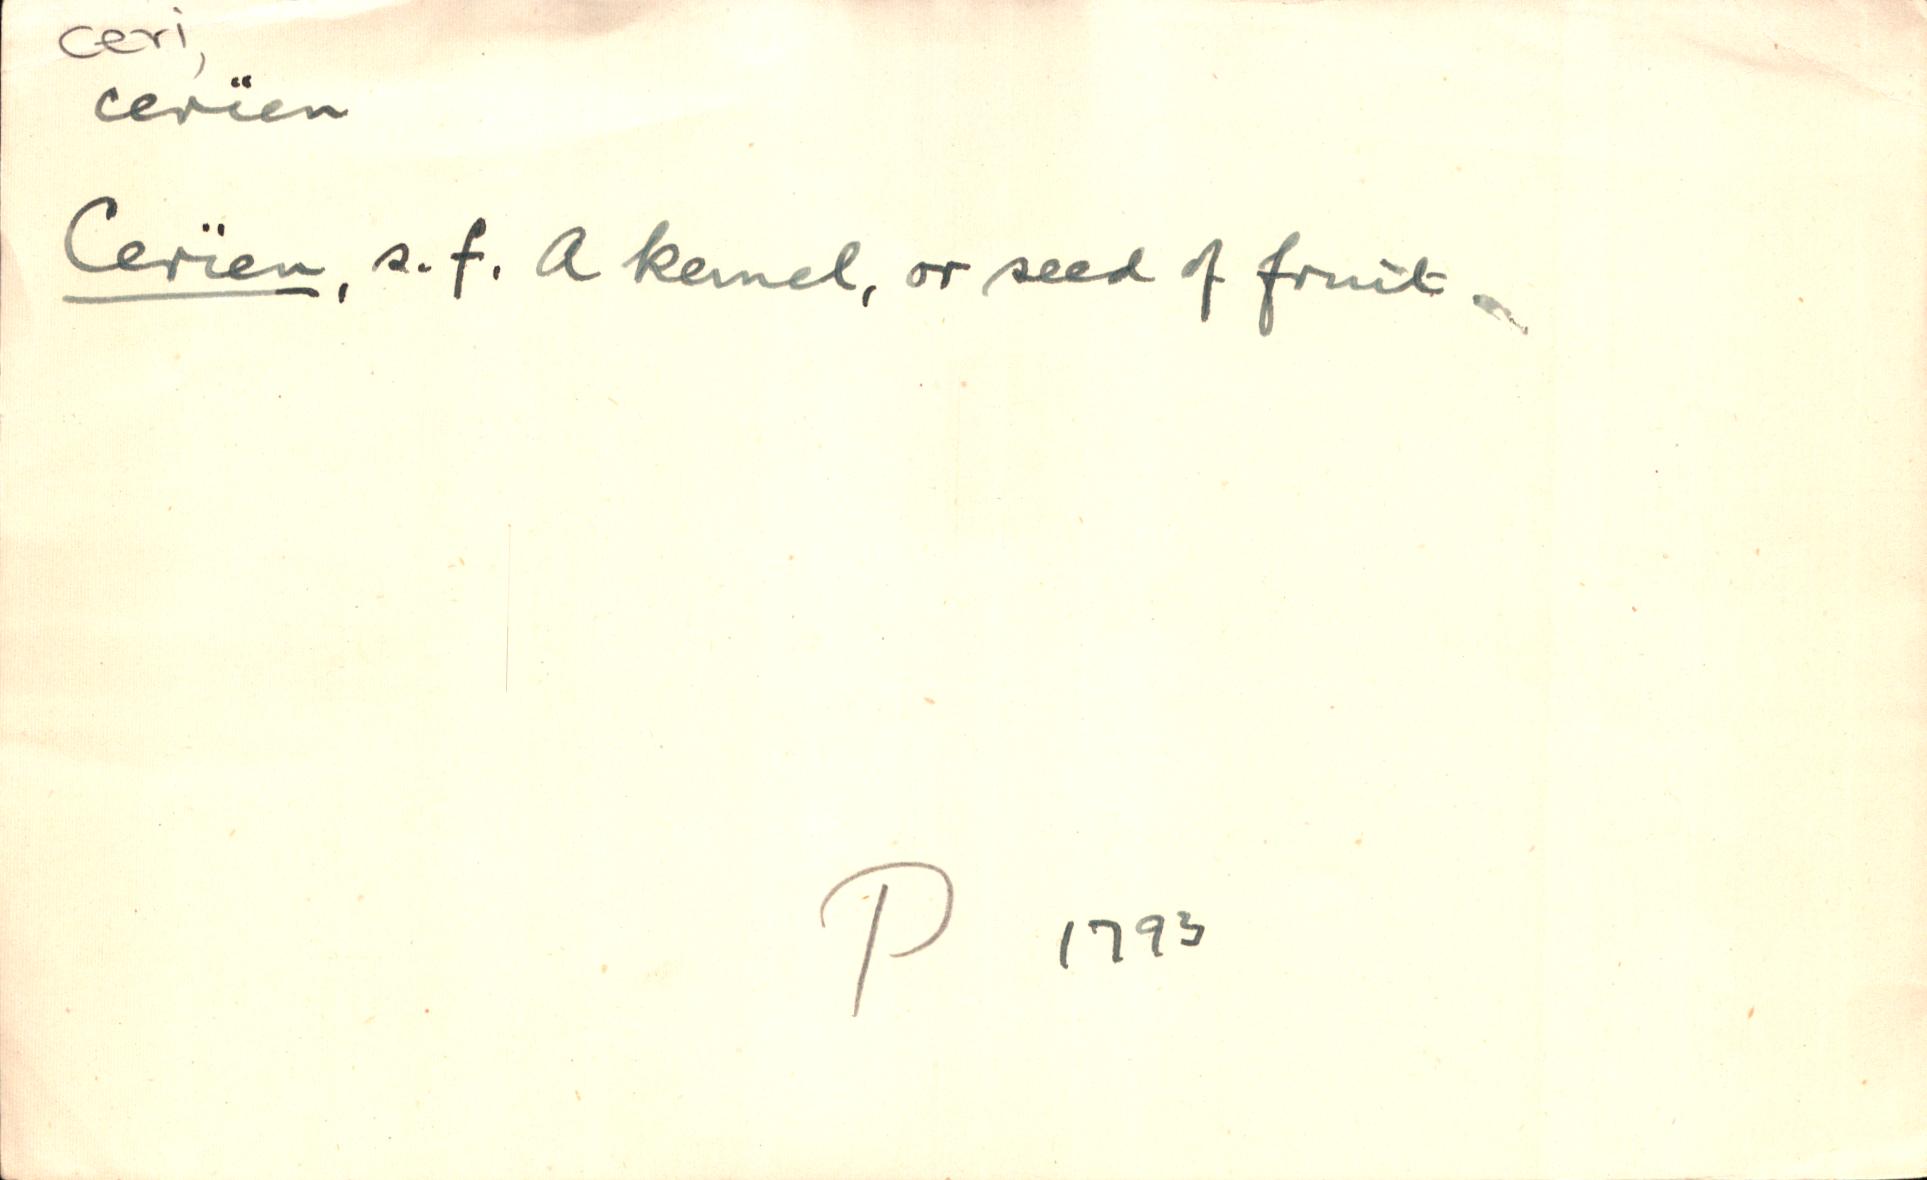 ceri,
cerïen
Cerïen, s.f. A kernel, or seed of fruit.
P 1793